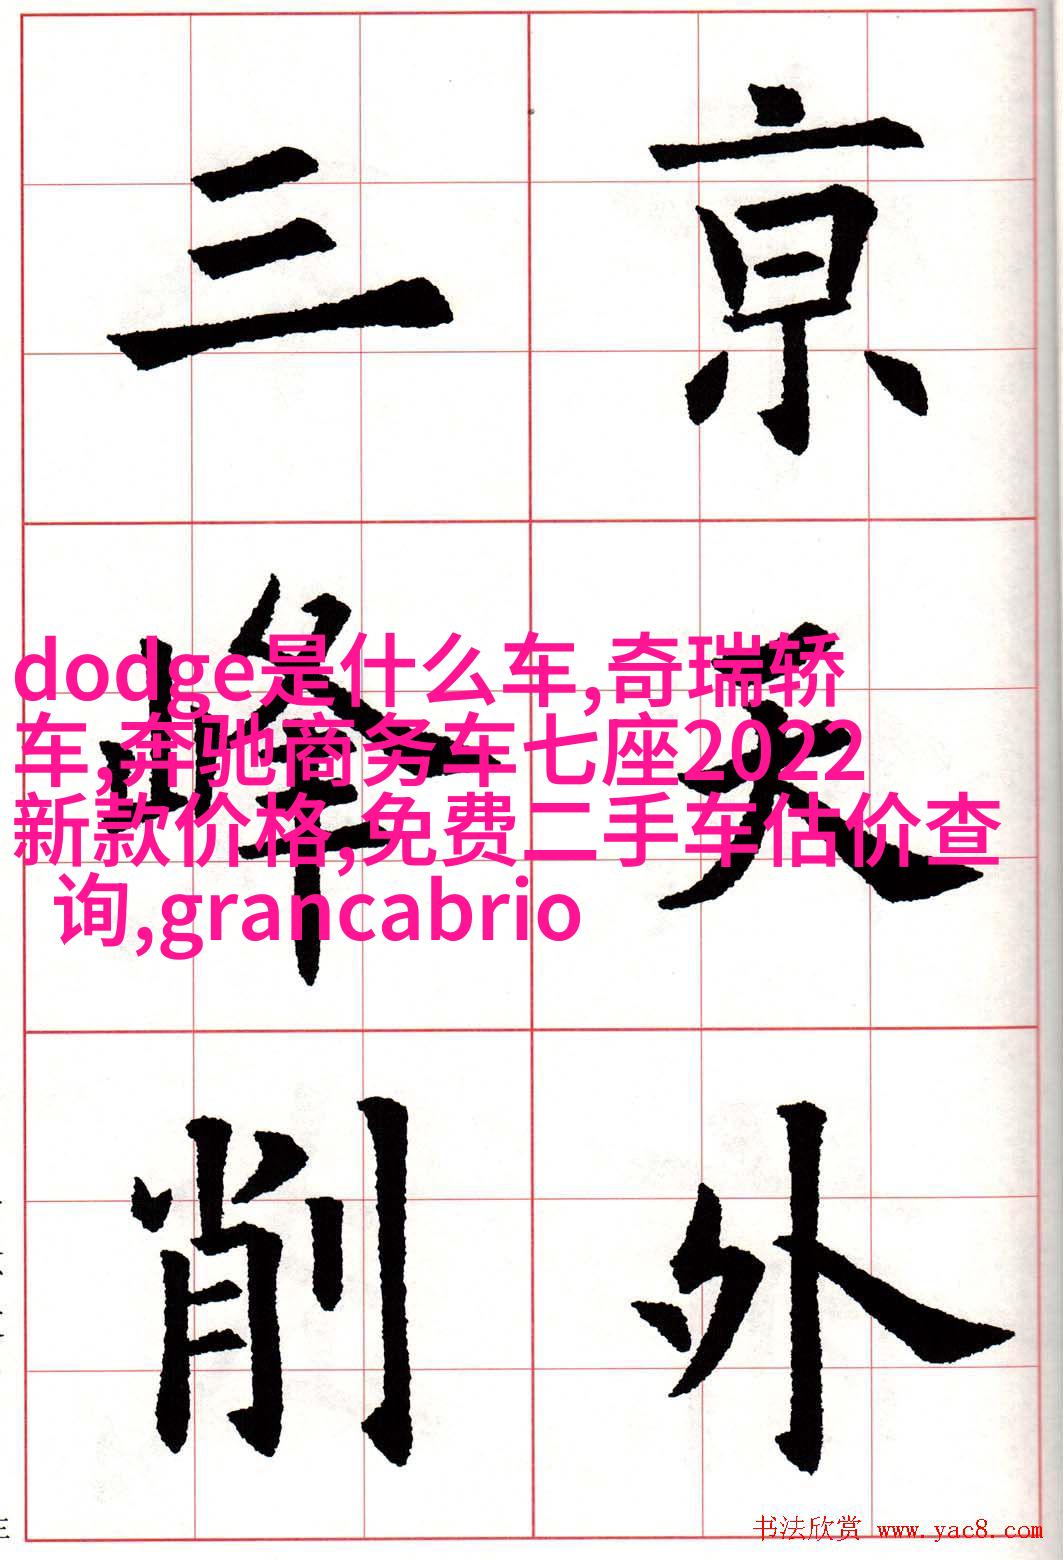 亰天外
三峰削
dodge是什么车,奇瑞轿
车,奔驰商务车七座2022
新款价格,免费二手车估价查
询,grancabrio
书法欣赏 www.yac8.com